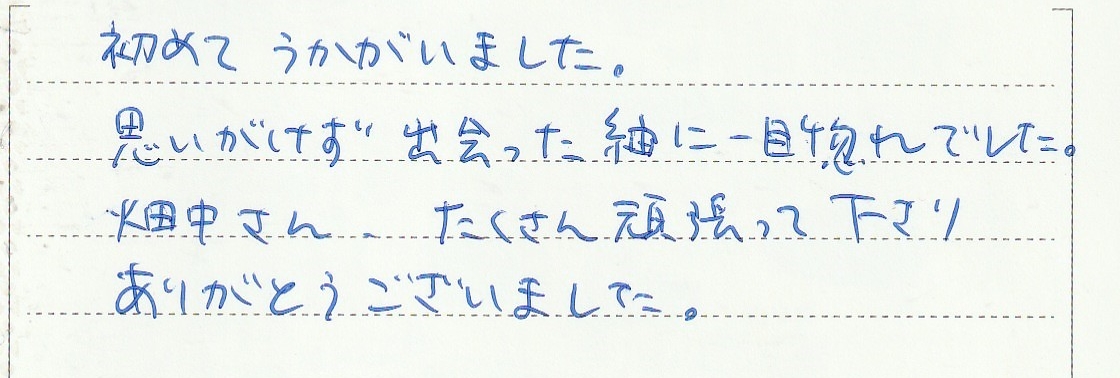 初めて うかがいました。
思いがけず 出会った 紬に一目惚れでした。
畑中さん、たくさん 頑張って 下さり
ありがとうございました。